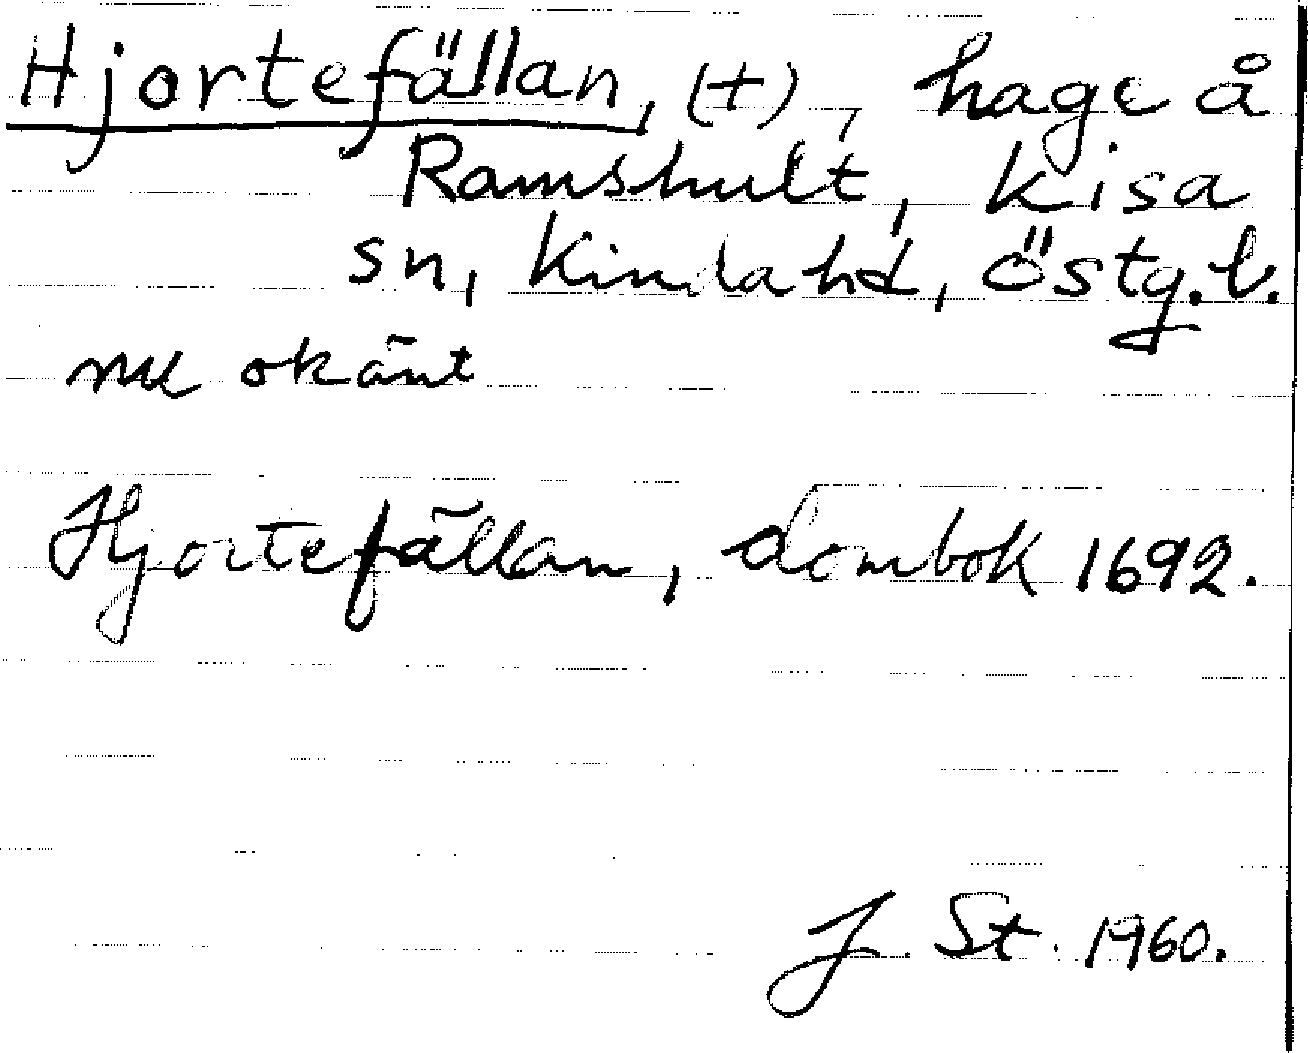 Hjortefällan, (+), hage å
Ramshult, Kisa
sn, Kinda hd, Östg.l.
nu okänt
Hjortefällan, dombok 1692.
J. St. 1960.